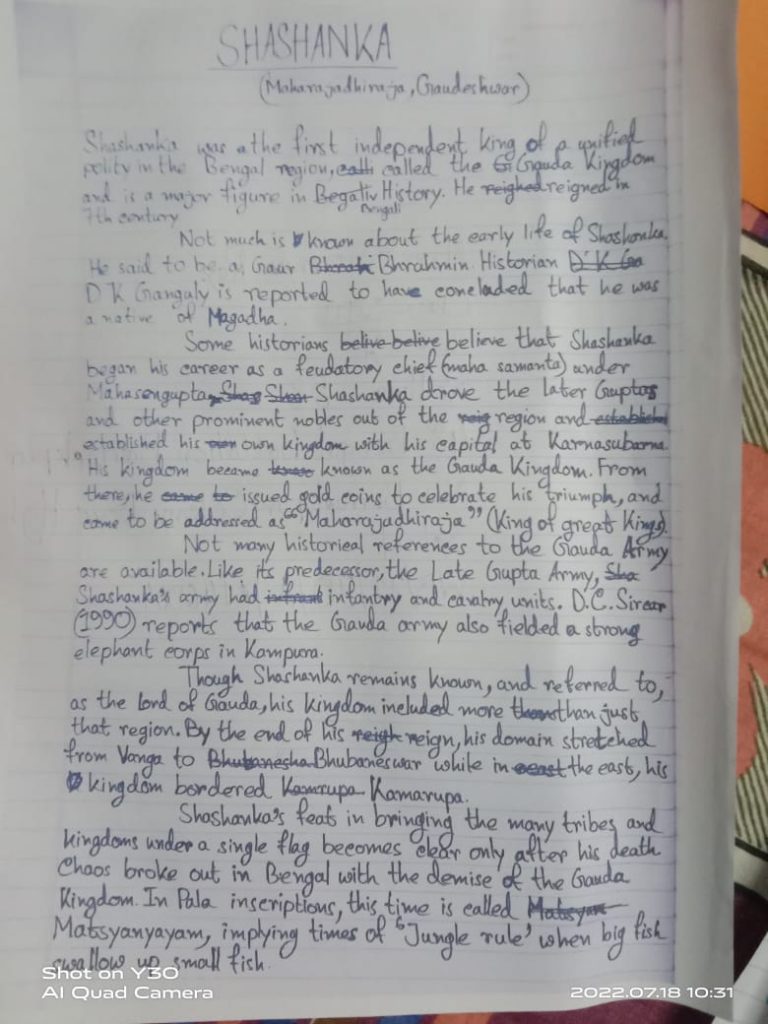 SHASHANKA
(Maharajadhiraja, Gaudeshwar)
Shashanka was athe first independent king of a unified
polity in the Bengal region, called the Gauda Kingdom
and is a major figure in Begaliv History. He reighed reigned in
Bengali
7th century
Not much is known about the early life of Shashanka.
He said to be a Gaur Bhrahmin Historian D K Ga
D K Ganguly is reported to have concladed that he was
a native of Magadha.
Some historians belive belive believe that Shashanka
began his career as a feudatory chief (maha samanta) under
Mahasengupta, Shas Shan Shashanka drove the later Guptas
and other prominent nobles out of the reig region and establish
established his own kingdom with his capital at Karnasubarna.
His kingdom became known as the Gauda Kingdom. From
there, he came to issued gold coins to celebrate his triumph, and
came to be addressed as "Maharajadhiraja" (King of great Kings)
Not many historical references to the Gauda Army
are available. Like its predecessor, the Late Gupta Army, Sha
Shashanka's army had infrant infantry and cavalry units. D.C. Sircar
(1990) reports that the Gauda army also fielded a strong
elephant corps in Kampura.
Though Shashanka remains known, and referred to,
as the lord of Gauda, his kingdom included more than just
that region. By the end of his reigh reign, his domain stretched
from Vanga to Bhubanesha Bhubaneswar while in east the east, his
kingdom bordered Kamrupa Kamarupa.
Shashanka's feats in bringing the many tribes and
kingdoms under a single flag becomes clear only after his death
Chaos broke out in Bengal with the demise of the Gauda
Kingdom. In Pala inscriptions, this time is called Matsyan
Matsyanyayam, implying times of 'Jungle rule' when big fish
swallow up small fish.
Shot on Y30
AI Quad Camera
2022.07.18 10:31